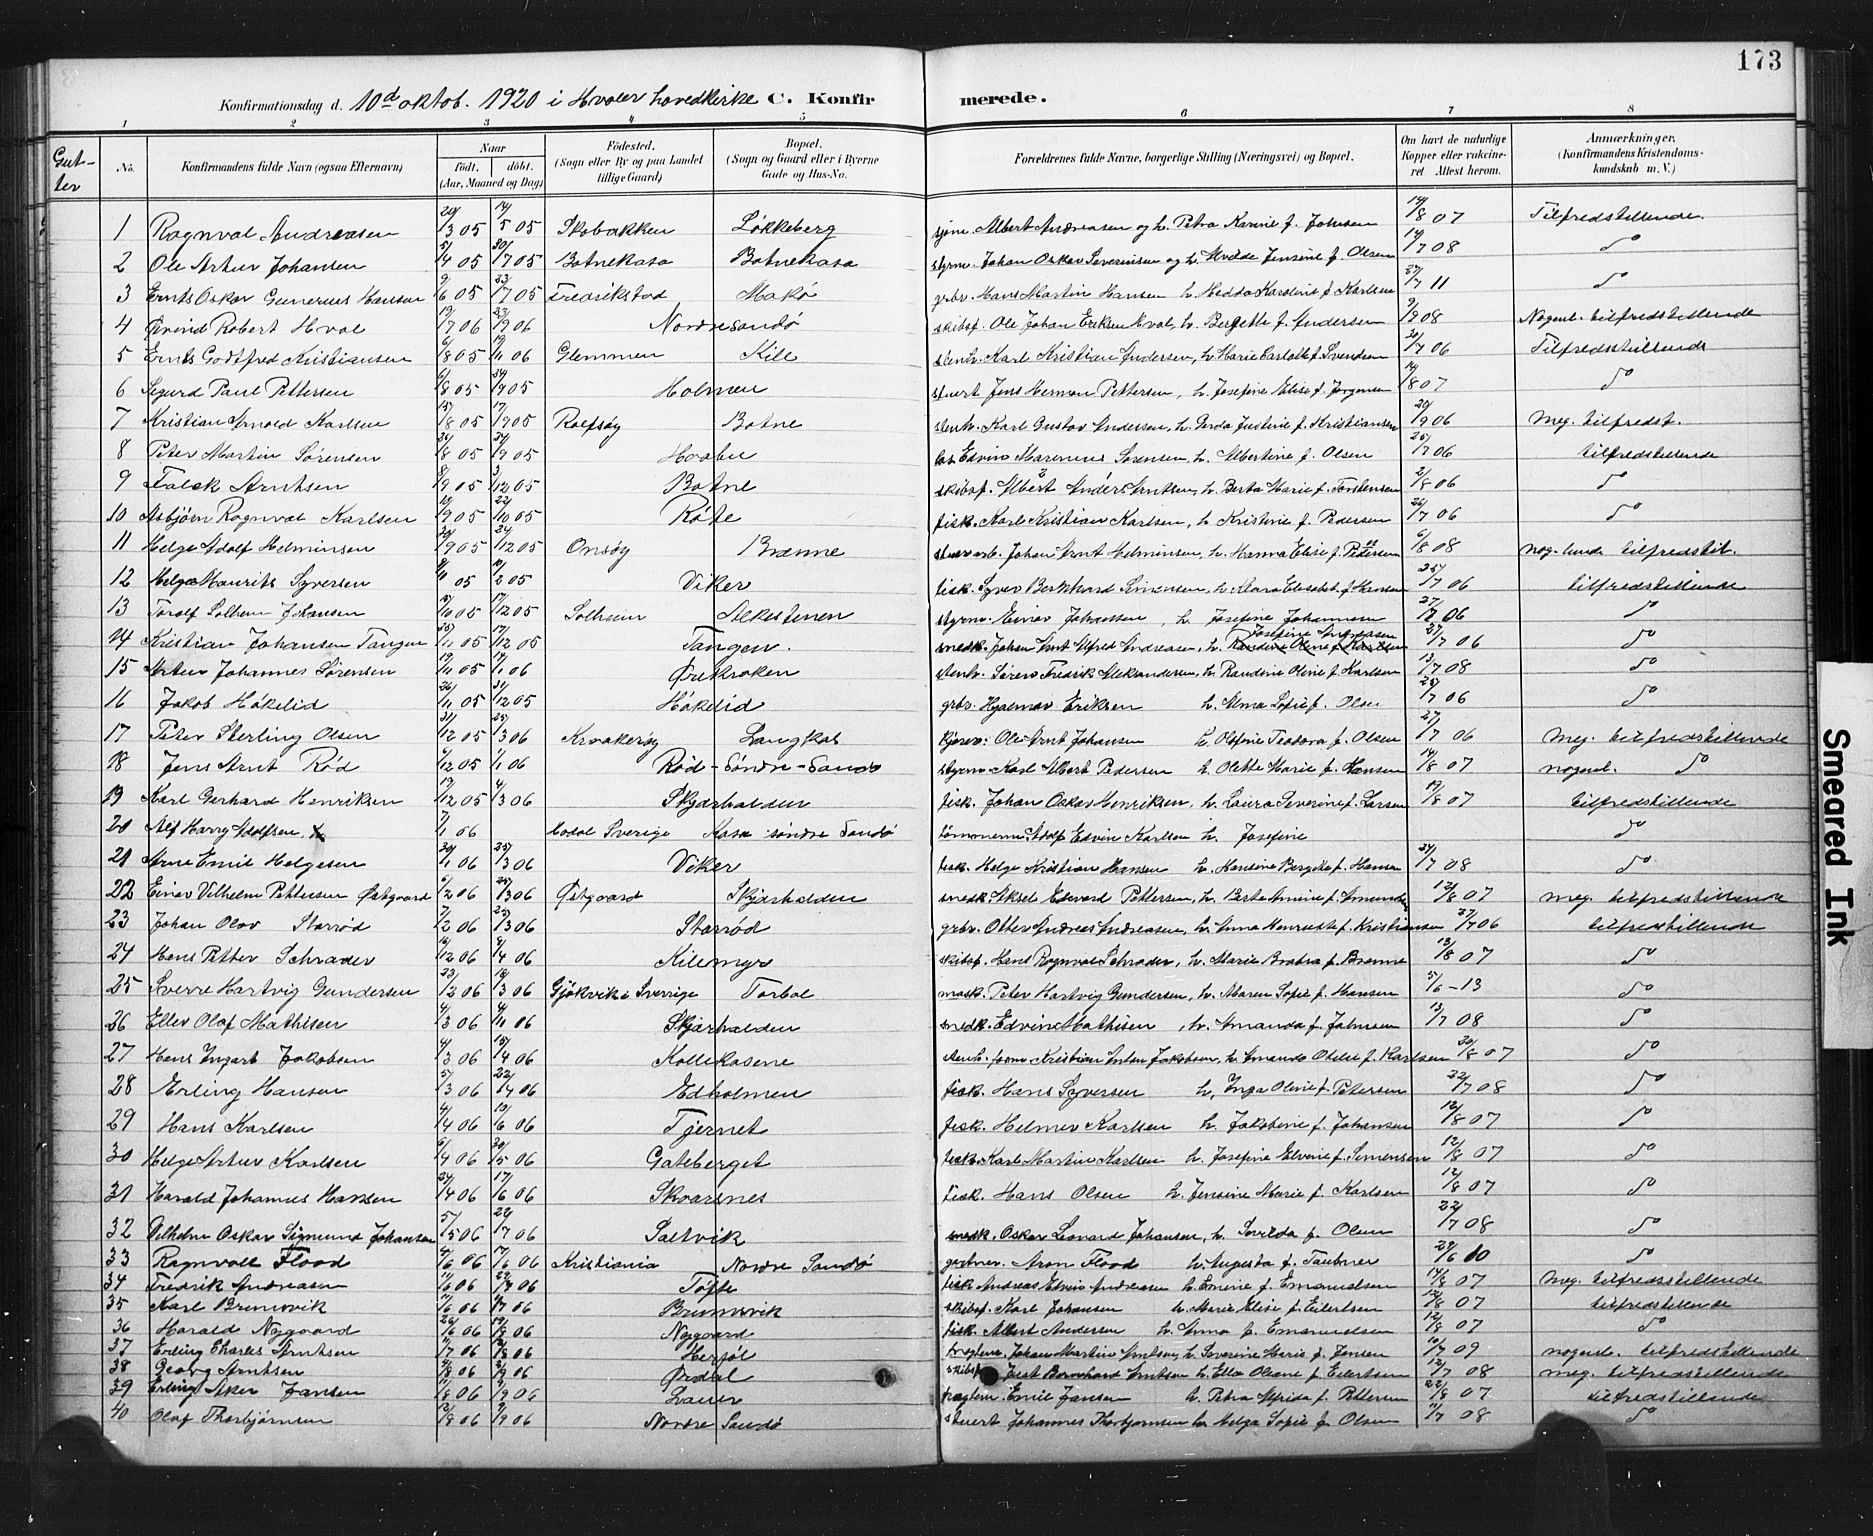 173
Konfirmationsdag d. 10d oktob. 1920 i Hvaler hovedkirke C. Konfirmerede.
1 2 3 4 5 6 7 8
Gutter
No.
Konfirmandens fulde Navn (ogsaa Efternavn)
Naar
født. døbt.
(Aar, Maaned og Dag)
Fødested.
(Sogn eller By og paa Landet tillige Gaard.)
Bopæl.
(Sogn og Gaard eller i Byerne Gade og Hus-No.
Forældrenes fulde Navne, borgerlige Stilling (Næringsvei) og Bopæl.
Om havt de naturlige Kopper eller vakcineret. Attest herom.
Anmærkninger,
(Konfirmandens Kristendomskundskab m. V.)
1 Ragnval Andreasen 20/3 05 14/5 05 Skobakken Løkkeberg sjøm. Albert Andreasen og h. Petra Karine f. Johnsen 14/8 07 Tilfredstillende
2 Ole Artur Johansen 5/4 05 30/7 05 Botnekasa Botnekasa styrm. Johan Oskar Severinsen og h. Jensine f. Olsen 14/7 08 do
3 Ernts Oskar Gunerius Hansen 9/6 05 23/7 05 Fredrikstad Makø grbr. Hans Martin Hansen h. Hedda Karoline f. Karlsen 27/7 11 do
4 Øivind Robert Hval 19/7 06 23/9 06 Nordre sandø skibsf. Ole Johan Eriksen Hval, h. Bergitte f. Andersen 9/9 08 Nogenl. tilfredstillende
5 Ernts Godtfred Kristiansen 6/8 05 19/11 06 Glemmen Kile stenh. Karl Kristian Andersen, h. Marie Carlotte f. Svendsen 20/7 06 Tilfredstillende
6 Sigurd Paul Pettersen 6/8 05 24/9 05 Holmen stuert Jens Herman Pettersen, h. Josefine Elise f. Jørgensen 14/8 07 do
7 Kristian Arnold Karlsen 15/8 05 17/9 05 Rolfsøy Botne stenh. Karl Gustav Andersen, h. Gerda Justine f. Kristiansen 20/9 06 Meg. tilfredst.
8 Peter Martin Sørensen 24/8 05 24/9 05 Hvabu los Edvin Marenius Sørensen, h. Albertine f. Olsen 25/7 06 tilfredstillende
9 Falck Arntsen 8/9 05 3/12 05 Botne skibsf. Albert Anders Arntsen, h. Berta Marie f. Torstensen 2/8 06 do
10 Asbjørn Ragnval Karlsen 19/9 05 22/10 05 Røte fisk. Karl Kristian Karlsen, h. Kristine f. Pedersen 26/7 06 do
11 Helge Adolf Helminsen 20/9 05 24/12 05 Onsøy Brænne stuerarb. Johan Arnt Helminsen, h. Hanna Elise f. Pedersen 6/8 08 nog. lunde tilfredstil.
12 Helge Maurits Syversen 05 /2 05 Viker fisk. Syver Bernhard Simensen, h. Klara Elisabet f. Hansen 25/7 06 tilfredstillende
13 Toralf Solheim Johansen /10 05 17/12 05 Solheim Alkestenen styrm. Einar Johansen, h. Josefine Johannesen 27/7 06 do
14 Kristian Johansen Tangen 25/11 05 17/12 05 Tangen. snedk. Johan Arnt Alfred Andreasen, h. Josefine Andreasen 27/7 06 do
15 Artur Johannes Sørensen 19/11 05 14/1 06 Ørekroken stenh. Søren Fredrik Aleksandersen, h. Randine Oline f. Karlsen 13/7 08 do
16 Jakob Håkelid 26/11 05 31/12 05 Håkelid grbr. Hjalmar Eriksen h. Alma Sofie f. Olsen 25/7 06 do
17 Peter Sterling Olsen 31/12 05 25/3 06 Kråkerøy Langkas Ole Arnt Johansen h. Olefine Teodora f. Olsen 27/7 06 Meg. tilfredstillende
18 Jens Arnt Rød /12 05 /1 06 Rød - Søndre - Sandø styrm. Karl Albert Pedersen h. Olette Marie f. Hansen 14/8 07 nogenl. do
19 Karl Gerhard Henriksen 19/12 05 4/3 06 Skjærhalden fisk. Johan Oskar Henriksen, h. Laura Severine f. Larsen 14/8 07 tilfredstillende
20 Alf Harry Adolfsen x 7/1 06 Lodal Sverige Kasa søndre Sandø tømmerm. Adolf Edvin Karlsen h. Josefine do
21 Arne Emil Helgesen 20/1 06 25/3 06 Viker fisk. Helge Kristian Hansen h. Handine Bergitte f. Hansen 24/7 08 do
22 Einar Vilhelm Pettersen Østgaard 6/2 06 25/3 06 Østgaard Skjærhalden snedk. Aksel Edvard Pettersen, h. Berte Amine f. Amundsen 12/8 07 meg. tilfredstillende
23 Johan Olav Starrød 7/2 06 25/3 06 Starrød grbr. Otter Andreas Andreasen, h. Anna Henriette f. Kristiansen 27/7 06 tilfredstillende
24 Hans Petter Schrader 16/12 06 8/4 06 Kilemyr skibsf. Hans Ragnval Schrader, h. Marie Brobra f. Brænne 13/8 07 do
25 Sverre Hartvig Gundersen 23/2 06 18/3 06 Gjøkvik i Sverrige Torbal mask. Peter Hartvig Gundersen, h. Maren Sofie f. Hansen 5/6 - 13 do
26 Eller Olaf Mathisen 4/3 06 4/11 06 Skjærhalden snedk. Edvin Mathisen, h. Amanda f. Johnsen 13/7 08 do
27 Hans Ingart Jakobsen 4/3 06 15/4 06 Kollekasene stenh. form. Kristian Anton Jakobsen, h. Amanda Otelie f. Karlsen 20/8 07 do
28 Erling Hansen 5/3 06 22/4 06 Edholmen fisk. Hans Syversen h. Inga Oline f. Petersen 22/7 08 do
29 Hans Karlsen 4/4 06 10/6 06 Tjernet fisk. Helmer Karlsen h. Jakobine f. Johansen 12/8 07 do
30 Helge Artur Karlsen 6/4 06 20/5 06 Gateberget fisk. Karl Martin Karlsen h. Josefine Elvine f. Simensen 12/8 07 do
31 Harald Johannes Hansen 24/4 06 17/6 06 Skvarsnes fisk. Hans Olsen h. Jensine Marie f. Karlsen 12/8 07 do
32 Vilhelm Oskar Sigmund Johansen 5/5 06 29/7 06 Saltvik snedk. Oskar Leonard Johansen, h. Sorilda f. Olsen 22/7 08 do
33 Ragnvall Flood 4/6 06 17/6 06 Kristiania Nordre Sandø gartner. Aron Flood h. Augusta f. Taubner 29/6 10 do
34 Fredrik Andreasen 11/6 06 29/7 06 Tøfte fisk. Andreas Edvin Andreasen h. Emine f. Emanuelsen 14/8 07 Meg. tilfredsstillende
35 Karl Brunsvik /6 06 /7 06 Brunsvik skibsf. Karl Johansen h. Marie Elise f. Eilertsen 12/8 07 tilfredstillende
36 Harald Nygaard 26/6 06 19/8 06 Nygaard fisk. Albert Andersen h. Anna f. Emanuelsen 12/8 07 do
37 Erling Charles Arntsen 11/7 06 /8 06 Herføl Johan Martin Arntsen, h. Severine Marie f. Jensen 10/7 09 nogenl. tilfredstillende
38 Georg Arntsen /8 06 /9 06 Ørdal skibsf. Just Bernhard Arntsen h. Ella Oliane f. Eilertsen 12/7 08 meg. tilfredstillende
39 Erling Aker Jansen /8 06 9/9 06 Lauer Emil Jansen h. Petra Alfrida f. Pettersen 22/8 07 tilfredstillende
40 Olaf Thorbjørnsen 12/8 06 9/9 06 Nordre Sandø stuert Johannes Thorbjørnsen h. Helga Sofie f. Olsen 11/7 08 do
Smeared Ink